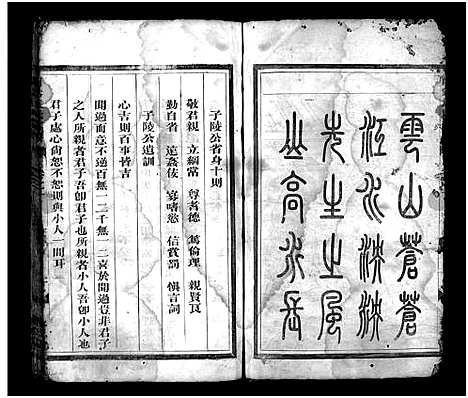 雲山蒼蒼
江水泱泱
先生之風
山高水長
子陵公省身十則
敬君親 立綱常 尊耆德 篤倫理 親賢良
勤自省 遠姦佞 寡嗜慾 信賞罰 慎言詞
子陵公遺訓
心吉則百事皆吉
聞過而喜不過百無一二千無一二喜於聞過豈非君子
之人所親者君子吾卽君子也所親者小人吾卽小人也
君子處心尙恕不恕則與小人一間耳